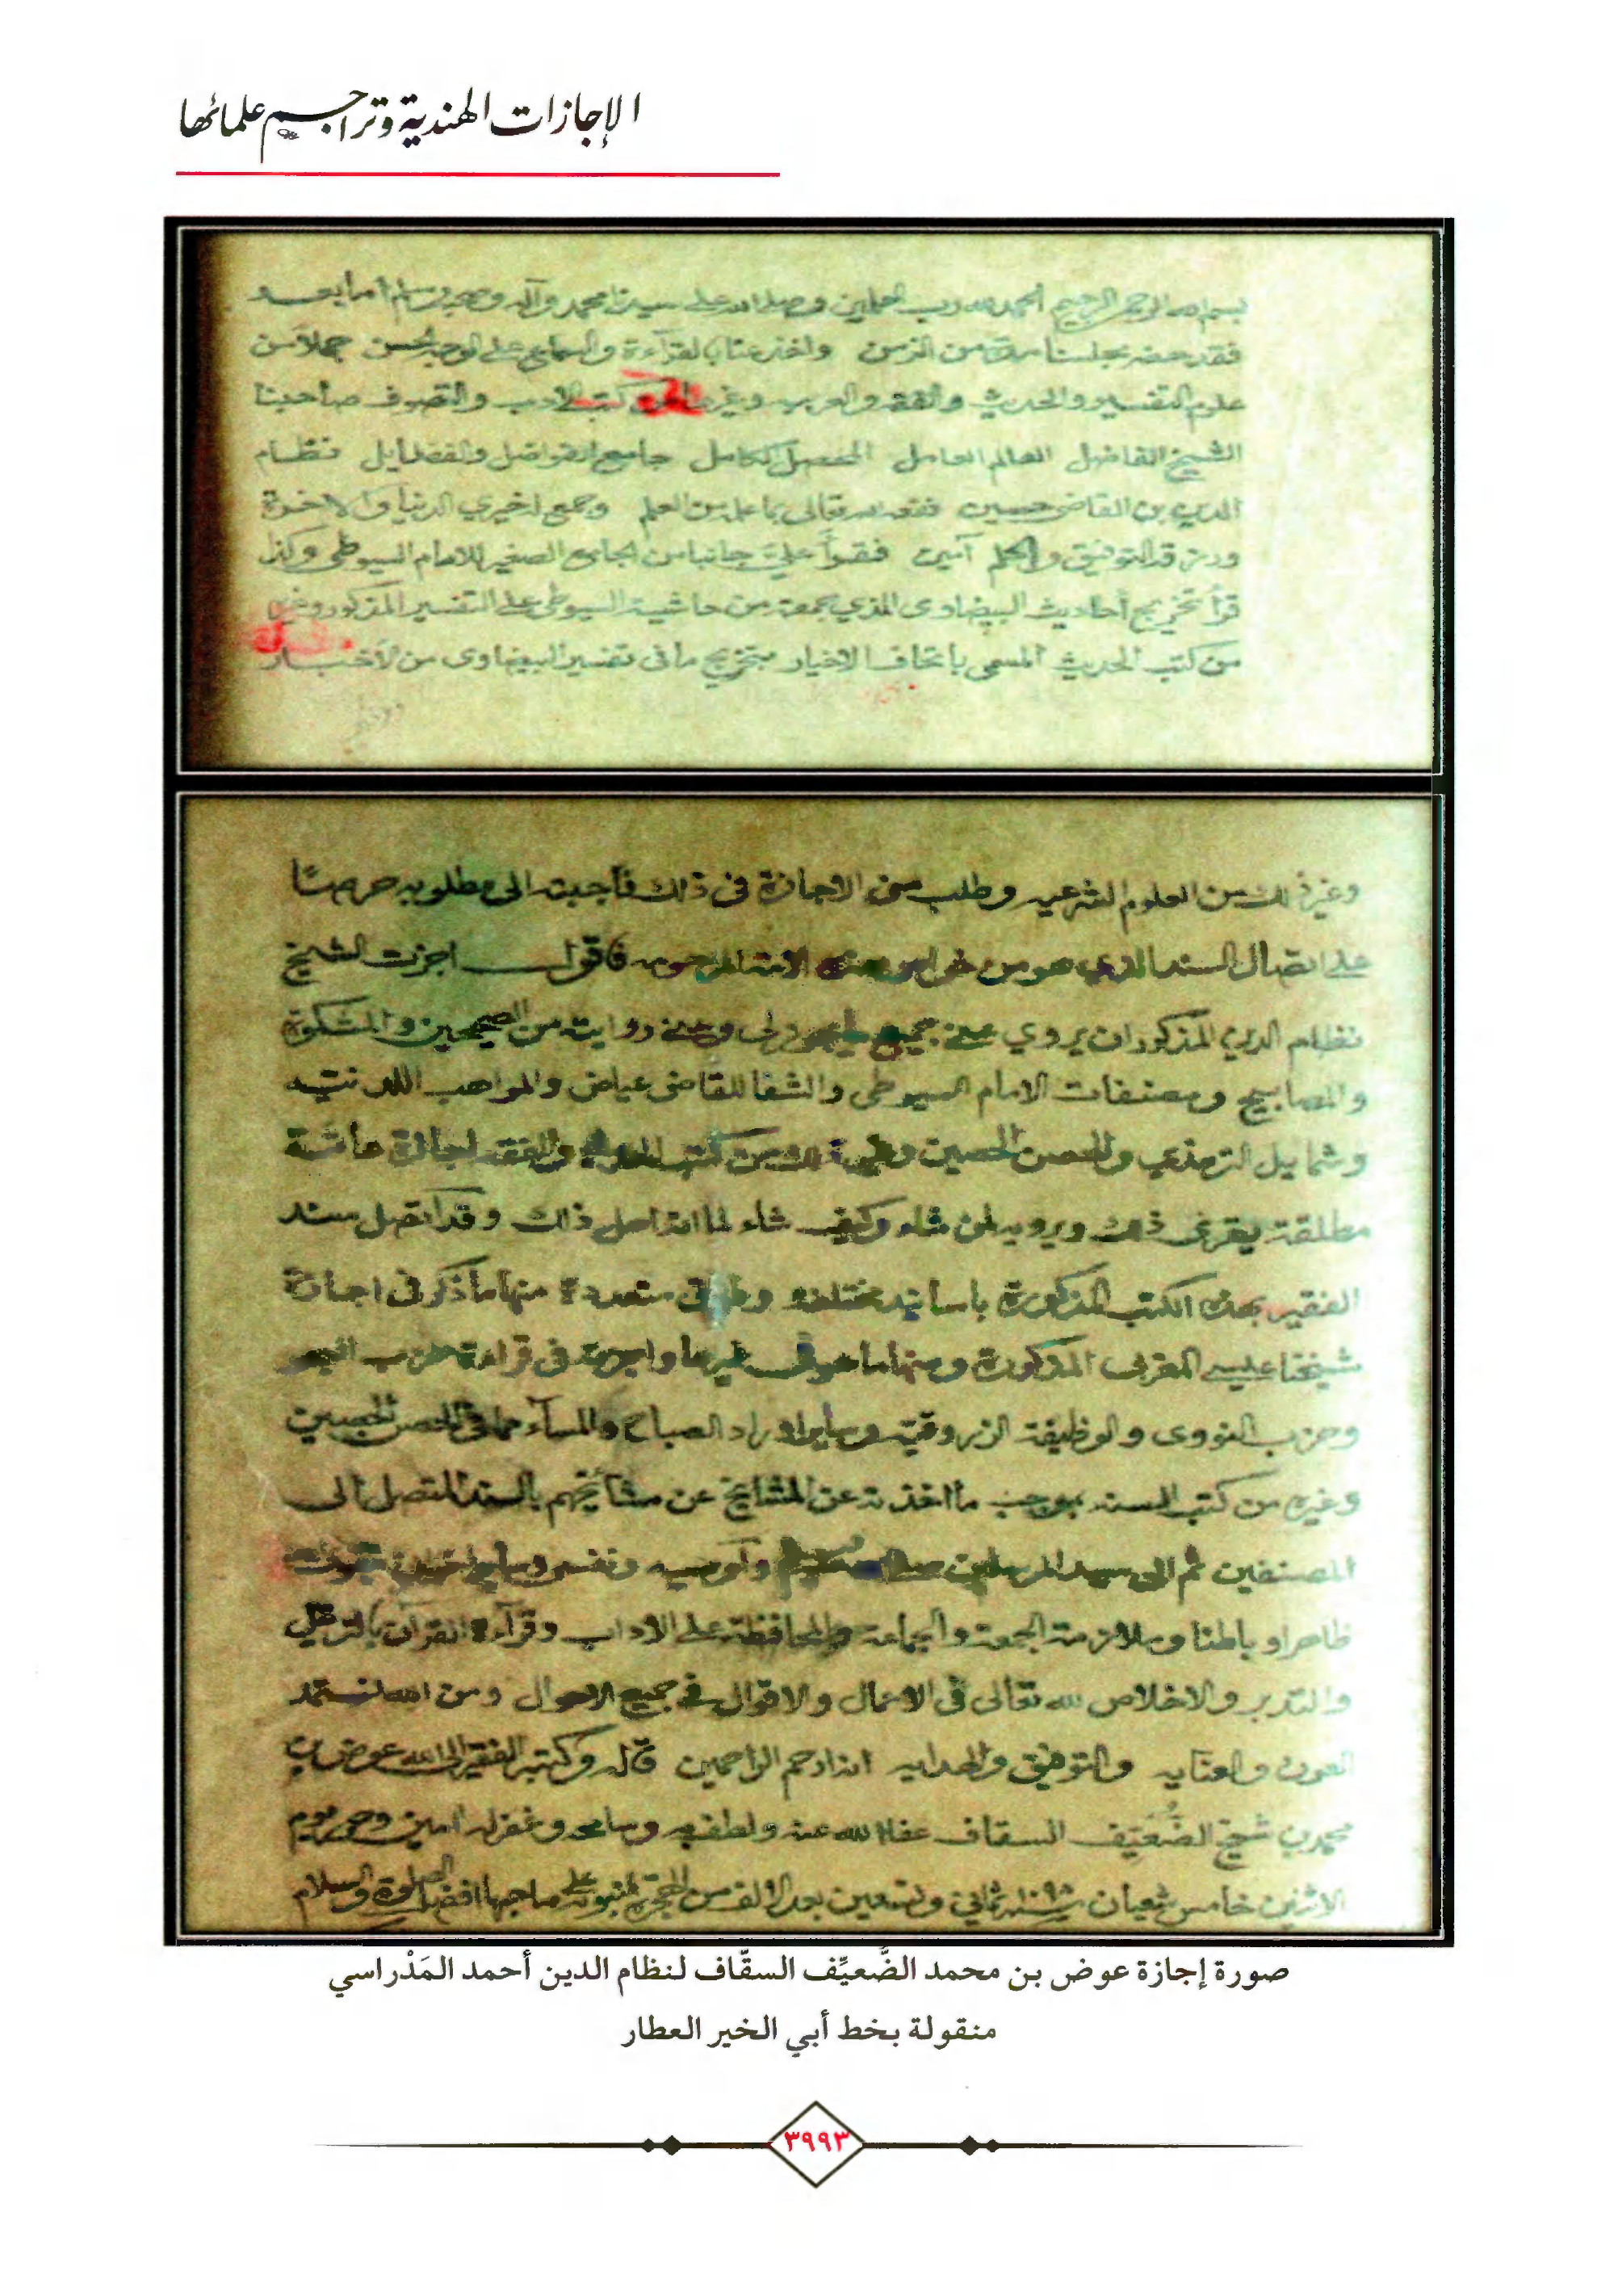 الإجازات الهندية وتراجم علمائها
بسم الله الرحمن الرحيم الحمد لله رب العلمين وصلى الله على سيدنا محمد وآله وصحبه وسلم أما بعد
فقد حضر مجلسنا مدة من الزمن واخذ عنا بالقرآءة والسماع على الوجه الحسن جملا من
علوم التفسير والحديث والفقه والعربيه وغير كتب الادب والتصوف صاحبنا
الشيخ الفاضل العالم العامل المحصل الكامل جامع الفواضل والفضايل نظام
الدين بن القاضي حسين نفعه الله تعالى بما علمه من العلم وجمع له خيري الدنيا والاخرة
ورزقه التوفيق والحلم آمين فقرأ علي جانبا من الجامع الصغير للامام السيوطي وكذا
قرأ تخريج أحاديث البيضاوى الذي جمعته من حاشية السيوطي على التفسير المذكور وغيرها
من كتب الحديث المسمى باتحاف الاخيار بتخريج ما فى تفسير البيضاوى من الأخبار
وغير ذلك من العلوم الشرعيه وطلب مني الاجازة فى ذلك فأجبته الى مطلوبه حرصا
على اتصال السند الذي هو من خواص هذه الامة المرحومه فاقول اجزت الشيخ
نظام الدين المذكور ان يروي عني جميع روايته من الصحيحين والمشكوة
والمصابيح ومصنفات الامام السيوطي والشفا للقاضى عياض والمواهب اللدنيه
وشمايل الترمذي والحصن الحصين وغير ذلك من كتب الحديث والفقه اجازة عامة
مطلقة يقرئ ذلك ويرويه لمن شاء وكيف شاء لما انه اهل ذلك وقد اتصل سند
الفقير بهذه الكتب المذكورة باسانيد مختلفه وطرق متعددة منها ما ذكر فى اجازة
شيخنا عيسى المغربى المذكورة ومنها ما هو فى غيرها واجزته فى قراءة حزب البحر
وحزب النووى والوظيفة الزروقية وساير اوراد الصباح والمسآء مما فى الحصن الحصين
وغيره من كتب السنه بموجب ما اخذته عن المشايخ عن مشايخهم بالسند المتصل الى
المصنفين ثم الى سيد المرسلين
ظاهرا وباطنا وملازمة الجمعة والجماعة والمحافظة على الآداب وقرآءة القرآن بالترتيل
والتدبر والاخلاص لله تعالى فى الاعمال والاقوال في جميع الاحوال ومن الله نستمد
العون والعنايه والتوفيق والهدايه انه ارحم الراحمين قاله وكتبه الفقير الى الله عوض بن
محمد بن شيخ الضُّعَيّف السقاف عفا الله عنه ولطف به وسامحه وغفر له امين يوم
الاثنين خامس شعبان سنة ثماني وتسعين بعد الالف من الهجرة النبويه على صاحبها افضل الصلوة والسلام
صورة إجازة عوض بن محمد الضَّعيِّف السقّاف لنظام الدين أحمد المَدْراسي
منقولة بخط أبي الخير العطار
٣٩٩٣